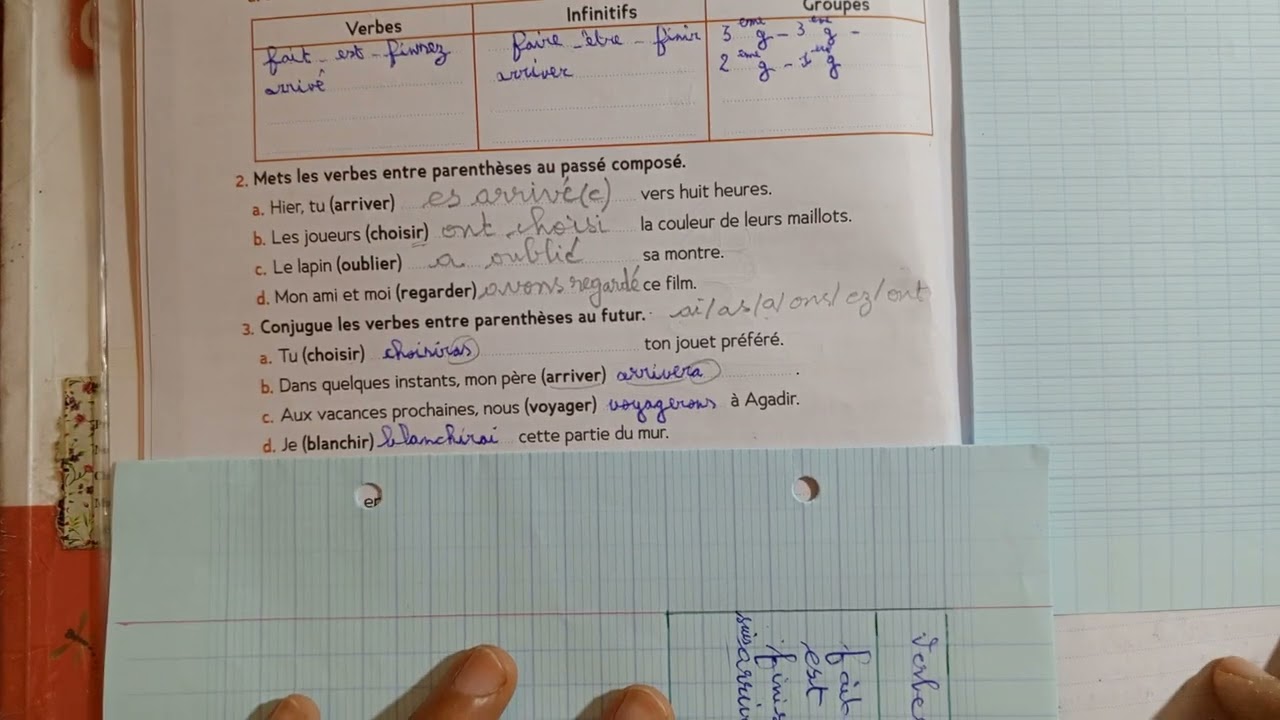 Verbes Infinitifs Groupes
fait - est - finirez faire - être - finir 3ème g - 3ème g -
arrivé arriver 2ème g - 1er g
2. Mets les verbes entre parenthèses au passé composé.
a. Hier, tu (arriver) es arrivé(e) vers huit heures.
b. Les joueurs (choisir) ont choisi la couleur de leurs maillots.
c. Le lapin (oublier) a oublié sa montre.
d. Mon ami et moi (regarder) avons regardé ce film.
3. Conjugue les verbes entre parenthèses au futur. ai/as/a/ons/ez/ont
a. Tu (choisir) choisiras ton jouet préféré.
b. Dans quelques instants, mon père (arriver) arrivera .
c. Aux vacances prochaines, nous (voyager) voyagerons à Agadir.
d. Je (blanchir) blanchirai cette partie du mur.
er
Verbe
fait
est
finis